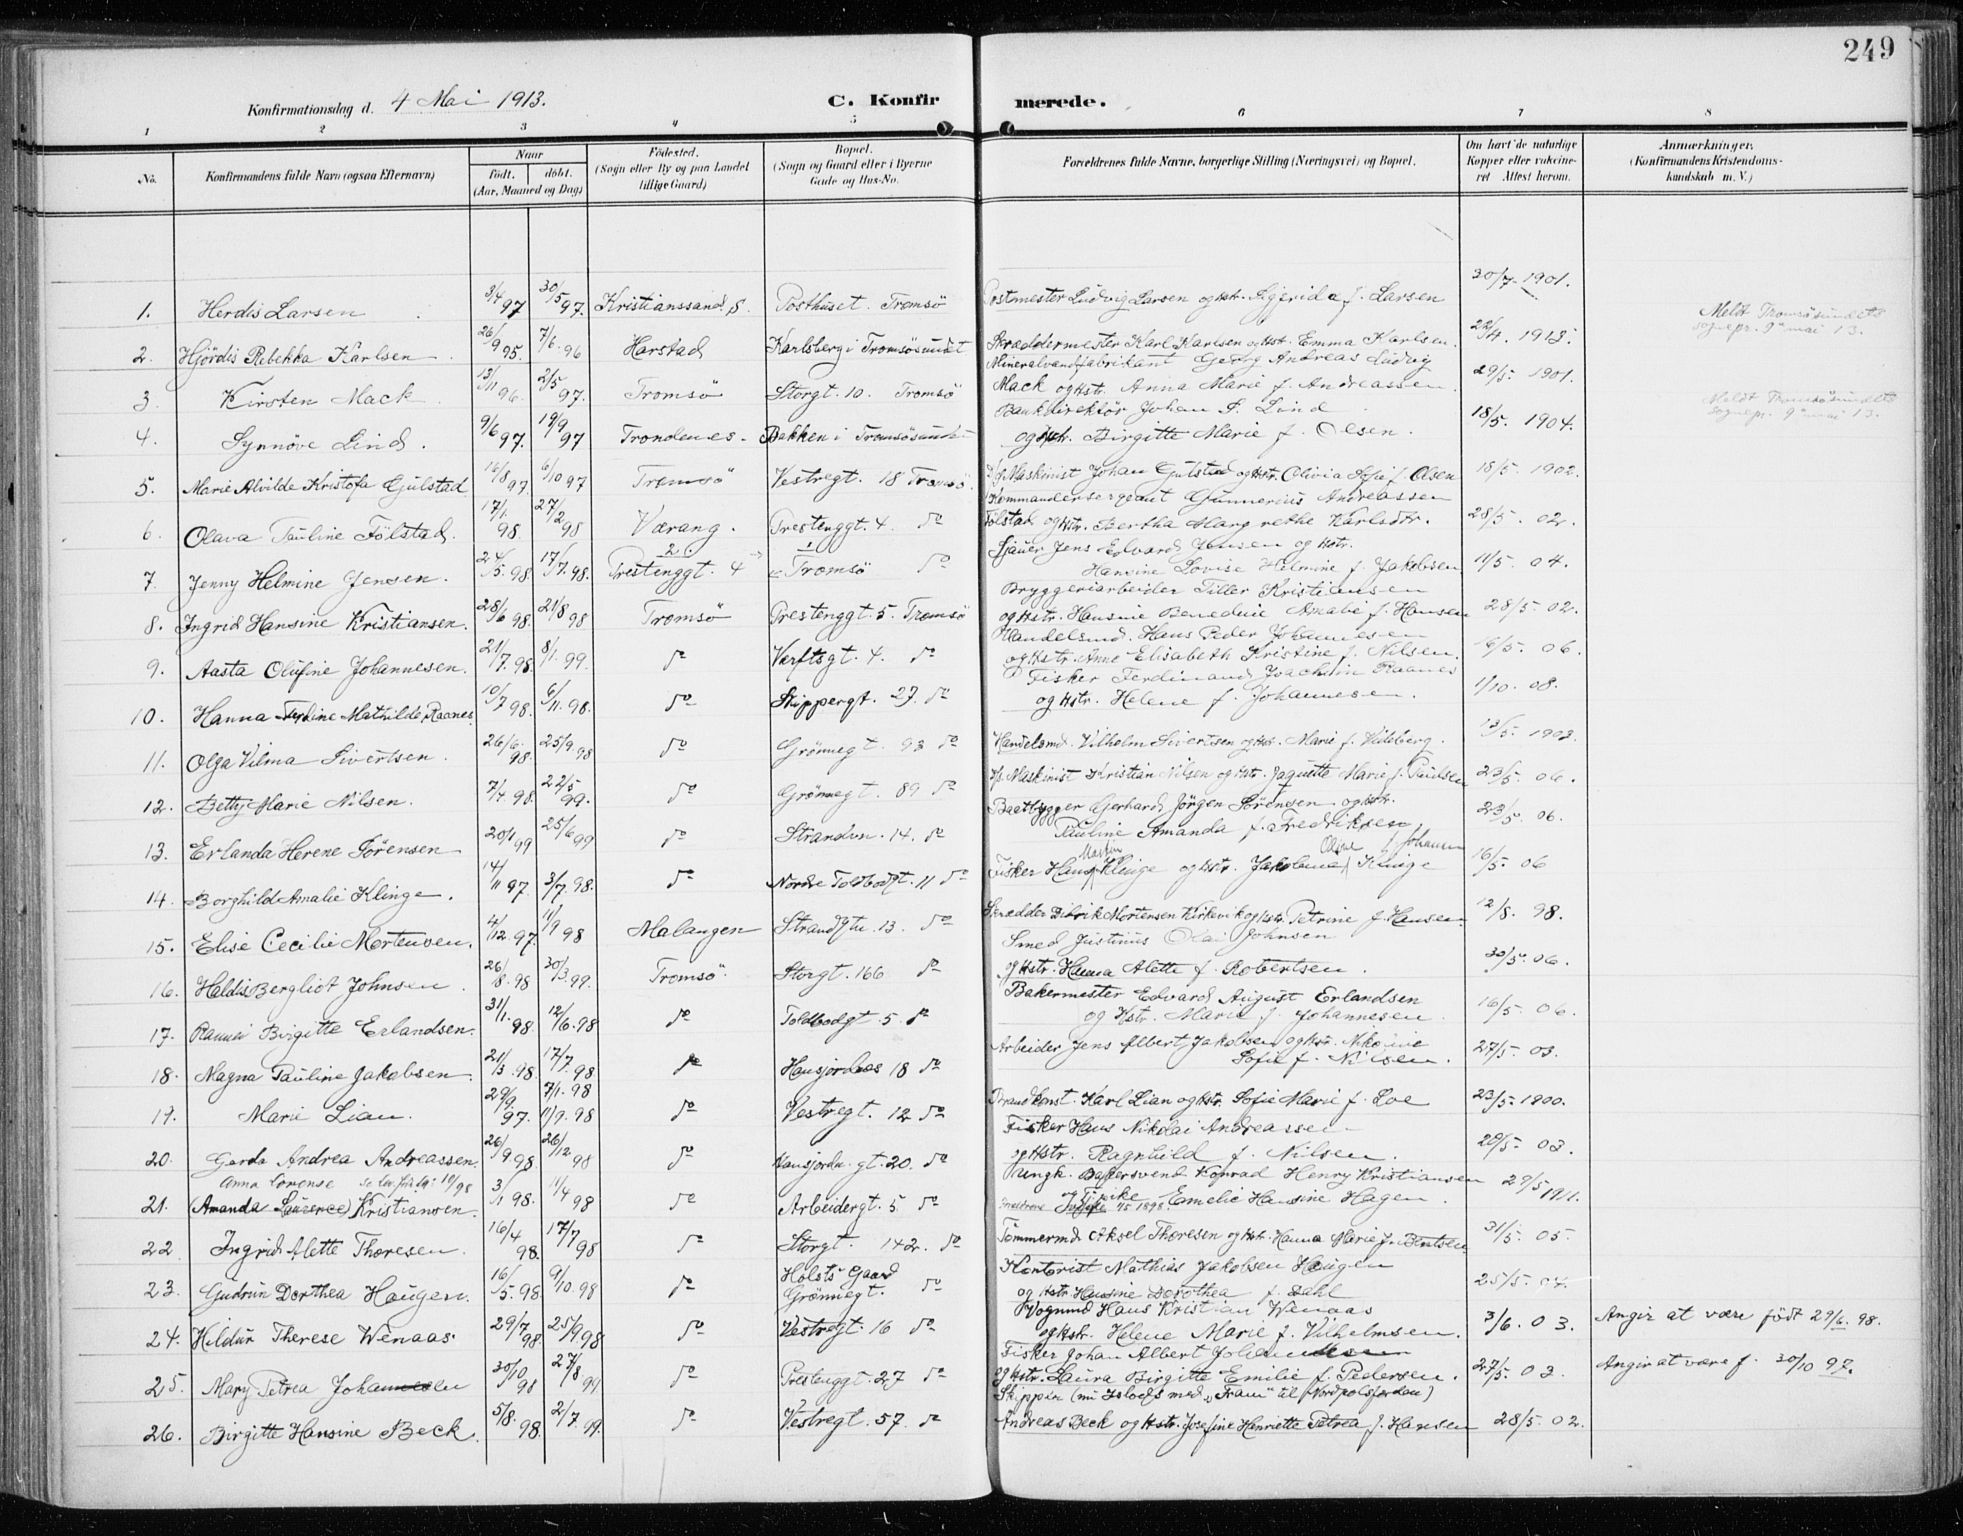 249
Konfirmationsdag d. 4 Mai 1913. C. Konfirmerede.
1 2 3 4 5 6 7 8
No. Konfirmandens fulde Navn (ogsaa Efternavn) Naar født. døbt. (Aar, Maaned og Dag) Fødested. (Sogn eller By og paa Landet tillige Gaard) Bopæl. (Sogn og Gaard eller i Byerne Gade og Hus-No. Forældrenes fulde Navne, borgerlige Stilling (Næringsvei) og Bopæl. Om havt de naturlige Kopper eller vakcineret Attest herom. Anmærkninger. (Konfirmandens Kristendomskundskab m. V.)
1. Herdis Larsen 3/4 97 30/5 97. Kristianssand S. Posthuset. Tromsö Postmester Ludvig Larsen og Hstr. f. Larsen 30/7. 1901.
2. Hjördis Rebekka Karlsen 26/9 95. 7/6. 96 Harstad Karlsberg i Tromsösundet Skræddermester Karl Karlsen og Hstr. Emma Karlsen. 22/4. 1913. Meldt Tromsösundets sognepr. 9de mai 13.
3 Kirsten Mack 13/11 96. 2/5 97. Tromsö Storgt. 10. Tromsö Mineralvandfabrikant Georg Andreas Ludvig
Mack og Hstr. Anna Marie f. Andreassen. 29/5. 1901.
4. Synnöve Lind. 9/6 97. 19/9 97 Trondenes. Bakken i Tromsösundet Bankdirektör Johan S. Lind
og Hstr. Birgitte Marie f. Olsen. 18/5. 1904. Meldt Tromsösundets sognepr. 9de mai 13.
5. Marie Alvilde Kristofa Gulstad 16/8 97. 6/10 97 Tromsö Vestregt. 18 Tromsö. Maskinist Johan Gulstad og Hstr. Olivia Sofie f. Olsen 18/5. 1902.
6. Olava Pauline Fölstad. 17/1. 98. 27/2 98 Værang. Prestenggt. 4. do Kommandersergeant Gunnerius Andreassen
Fölstad og Hstr. Bertha Margrethe Karlsdtr. 28/5. 02.
7. Jenny Helmine Jensen. 24/5. 98. 17/7. 98. Prestenggt. 4 Tromsö do Sjauer Jens Edvard Jensen og Hstr.
Hansine Lovise Helmine f. Jakobsen 11/5. 04.
8. Ingrid Hansine Kristiansen. 28/6 98. 21/8 98 Tromsö Prestenggt. 5. Tromsö Bryggeriarbeider Tiller Kristiansen
og Hstr. Hansine Amalie f. Hansen 28/5. 02.
9. Aasta Olufine Johannesen. 21/7. 98. 8/1. 99. do Værftsgt. 4. do Handelsmd. Hans Peder Johannesen
og Hstr. Anne Elisabeth Kristine f. Nilsen. 16/5. 06.
10. Hanna Mathilde Raanes. 10/7 98. 6/11. 98. do Skippergt. 27. do Fisker Ferdinand Joachim Raanes
og Hstr. Helene f. Johannesen. 1/10. 08.
11. Olga Vilma Sivertsen. 26/6. 98. 25/9 98 do Grönnegt. 93 do Handelsmd. Vilhelm Sivertsen og Hstr. Marie f. 13/5. 1903.
12. Betty Marie Nilsen. 7/4. 98. 22/5 99. do Grönnegt 89 do Maskinist Kristian Nilsen og Hstr. Jaquette Marie f. Paulsen 23/5. 06.
13. Erlanda Herene Sörensen 20/1 99 25/6 99 do Strandvn. 14. do Baatbygger Gerhard Jörgen Sörensen og Hstr.
Pauline Amanda f. Fredriksen. 23/5. 06.
14. Borghild Amalie Klinge. 14/11 97. 3/7. 98. do Nordre Toldbodgt. 11 do Fisker Hans Martin Klinge og Hstr. Jakobine Oline Klinge f. Johansen 16/5. 06
15. Elise Cecilie Mortensen. 4/12. 97. 11/9 98 Malangen 13. do Skrædder Mortensen Kirkevik og Hstr. Petrine f. Hansen. 12/8. 98.
16. Haldis Bergliot Johnsen. 26/8. 98 30/3. 99. Tromsö. Storgt. 166 do Smed Justinus Olai Johnsen
og Hstr. Hanna Alette f. Robertsen. 30/5. 06.
17. Birgitte Erlandsen. 31/1. 98. 12/6. 98 do Toldbodgt. 5. do Bakermester Edvard August Erlandsen
og Hstr. Marie f. Johannesen. 16/5. 06.
18. Magna Pauline Jakobsen. 21/3 .98. 17/7. 98 do Hansjordnes 18 do Arbeider Jens Albert Jakobsen og Hstr. Nikoline
Sofie f. Nilsen. 27/5. 03.
19. Marie Lian. 29/9 97. 7/1. 98 11/9. 98 do Vestregt. 12 do Brandkonst. Karl Lian og Hstr. Sofie Marie f. Loe 23/5. 1900.
20. Gerda Andrea Andreassen. 26/9 98. 26/12 98 do Hansjordn. gt. 20. do Fisker Hans Nikolai Andreassen
og Hstr. Ragnhild f. Nilsen. 29/5. 03.
Anna Lovense
21. (Amanda Laurence) Kristiansen. 3/1 98. 11/4 98 do Arbeidergt. 5. do Ungk. Bakersvend Konrad Henry Kristiansen
og Pike Emelie Hansine Hagen. 29/5 1911.
22. Ingrid Alette Thoresen. 16/4 98. 17/7 98 do Storgt. 142. do Tömmermd Aksel Thoresen og Hstr. Hanna Marie f. Bentsen 31/5. 05.
23. Gudrun Dorthea Haugen. 16/5. 98. 9/10. 98 do Holsts Gaard Grönnegt. do Kontorist Mathias Jakobsen Haugen
og Hstr. Hansine Dorothea f. Dahl 25/5. 04.
24. Hildur Therese Wenaas. 29/7 98. 25/9. 98 do Vestregt. 16 do Vognmd Hans Kristian Wenaas
og Hstr. Helene Marie f. Vilhelmsen. 3/6. 03. Angir at være födt 29/6. 98.
25. Mary Petrea Johannesen 30/10 98 27/8 99 do Prestenggt. 27 do Fisker Johan Albert Johannesen
og Hstr. Laura Birgitte Emilie f. Pedersen. 27/5. 03. Angir at være f. 30/10 97.
26. Birgitte Hansine Beck. 5/8. 98. 2/7. 99. do Vestregt. 57. do Skipper (nu Islods med "Fram" til Nordpolsfærden)
Andreas Beck og Hstr. Josefine Henriette Petrea f. Hansen 28/5. 02.